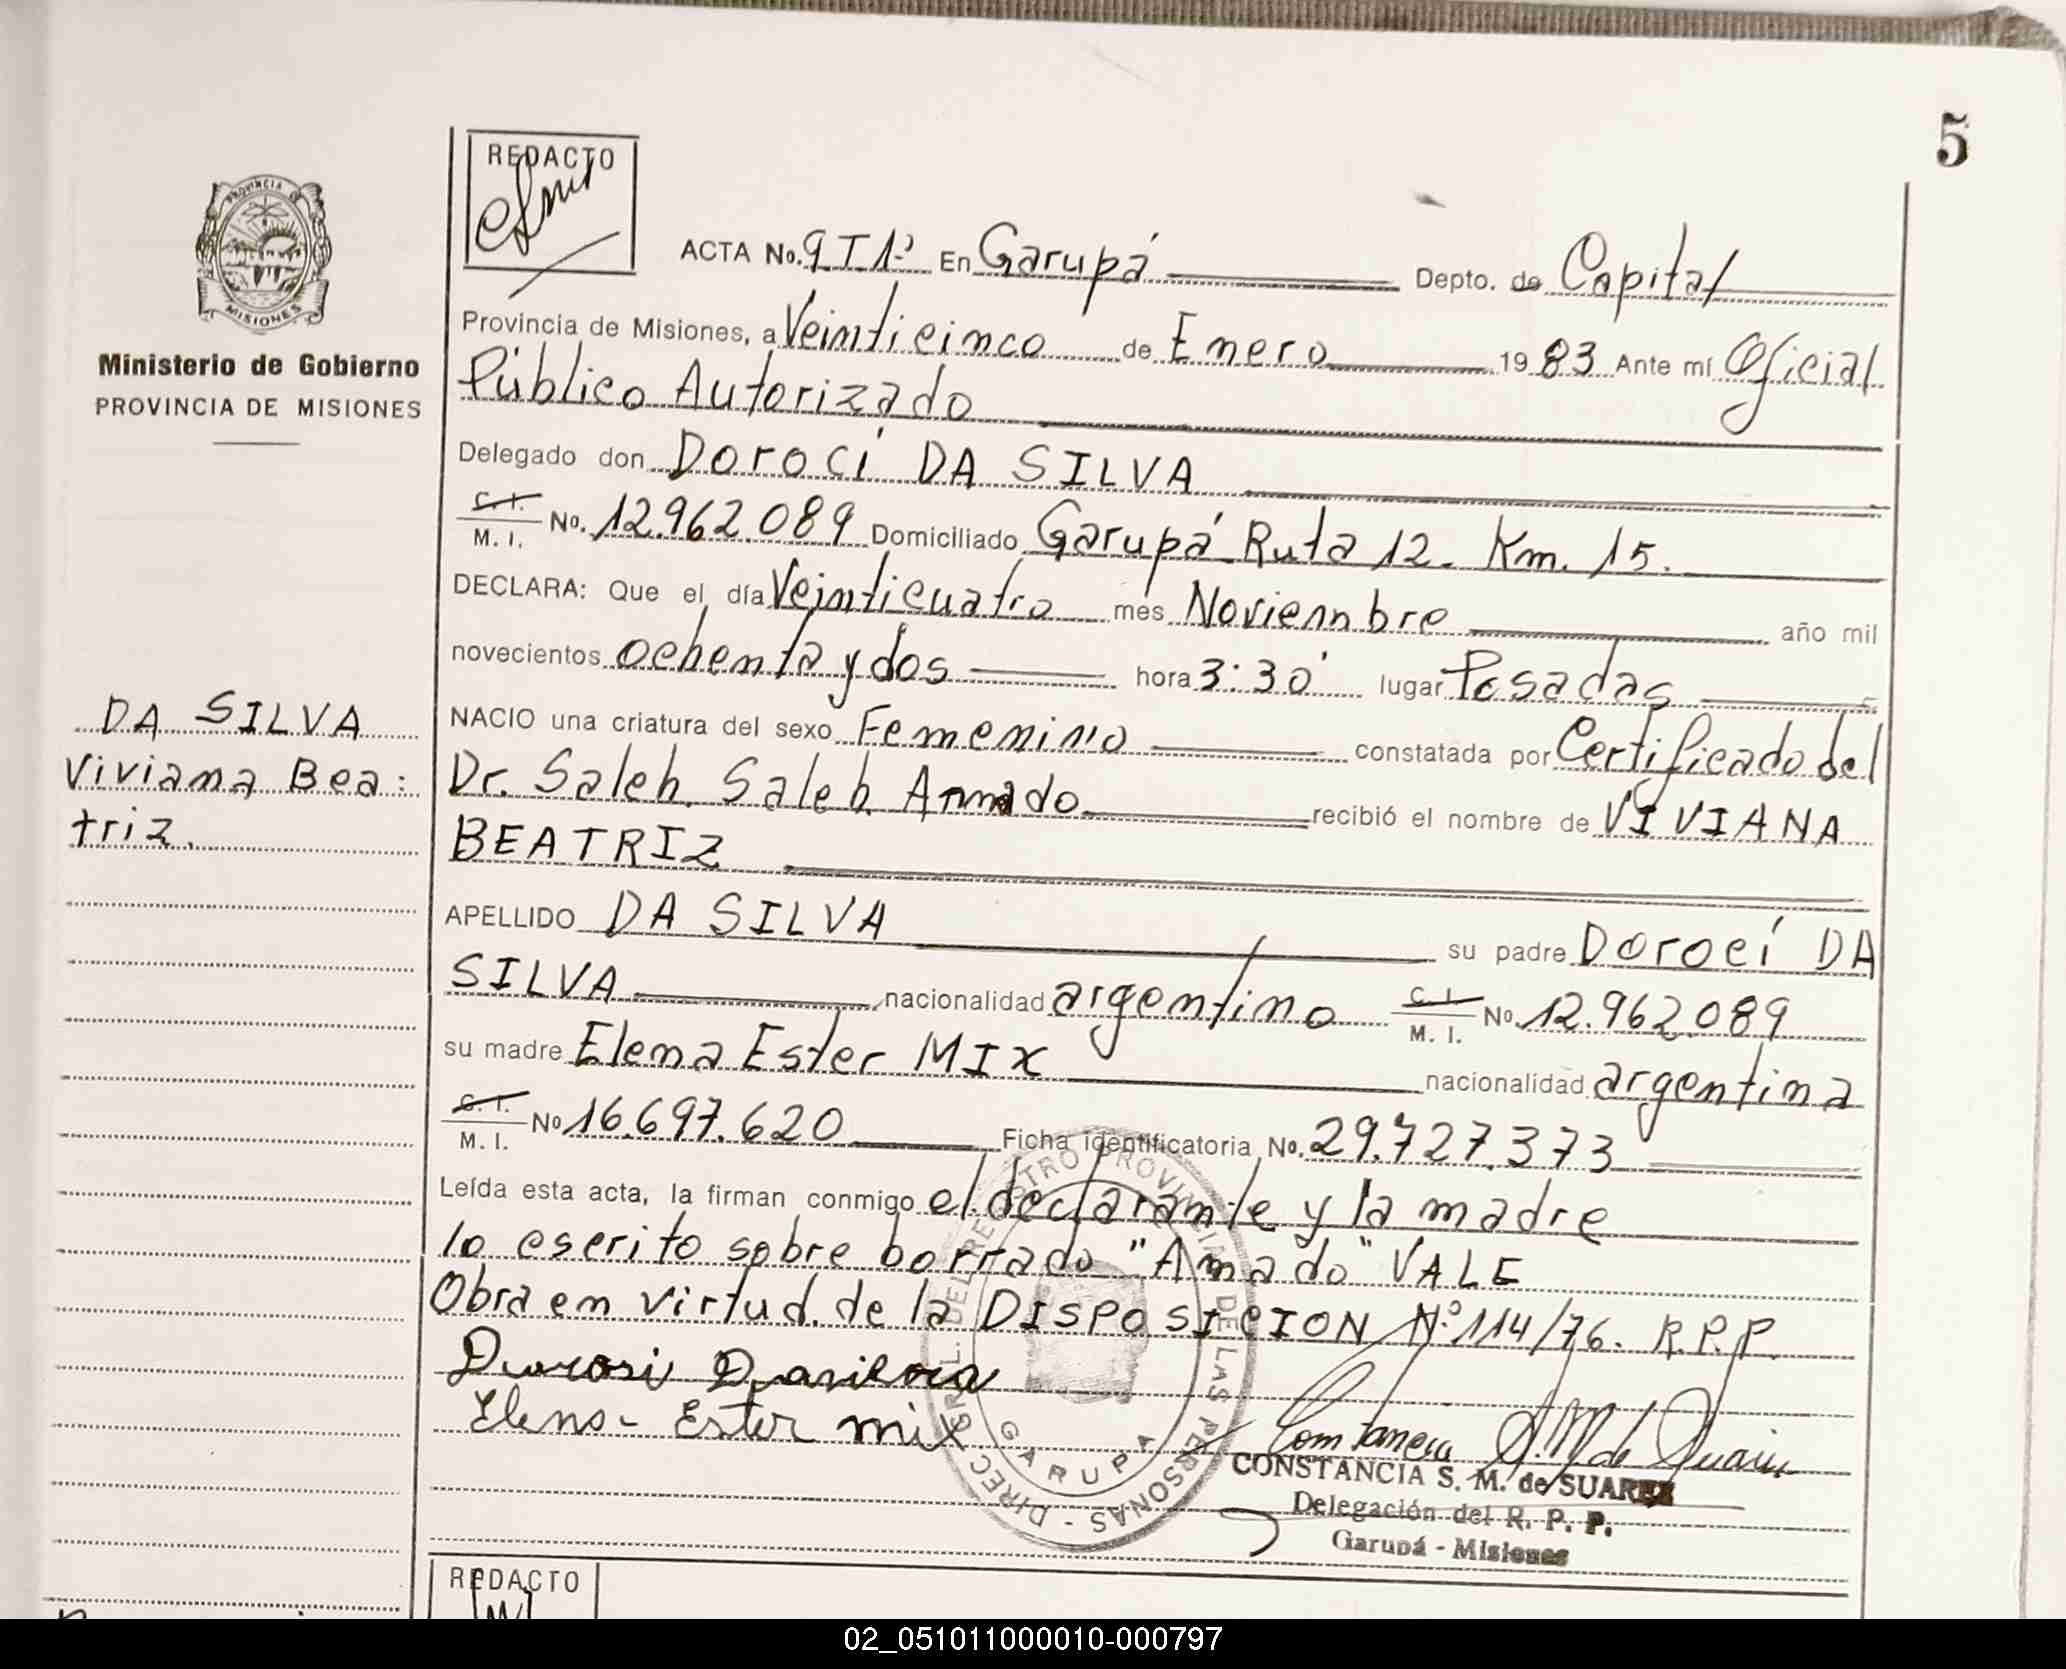 5
REDACTO
PROVINCIA DE
MISIONES
Ministerio de Gobierno
PROVINCIA DE MISIONES
ACTA No. 9 T 1º En Garupá Depto. de Capital
Provincia de Misiones, a Veinticinco de Enero 1983 Ante mí Oficial
Público Autorizado
Delegado don DOROCÍ DA SILVA
C. I. / M. I. No. 12.962.089 Domiciliado Garupá Ruta 12. Km. 15.
DECLARA: Que el día Veinticuatro mes Noviembre año mil
novecientos ochenta y dos hora 3:30' lugar Posadas
NACIO una criatura del sexo Femenino constatada por Certificado del
Dr. Saleh. Saleh. Amado recibió el nombre de VIVIANA
BEATRIZ
APELLIDO DA SILVA su padre DOROCÍ DA
SILVA nacionalidad argentino C. I. / M. I. No. 12.962.089
su madre Elena Ester MIX nacionalidad argentina
C. I. / M. I. No 16.697.620 Ficha identificatoria No. 29.727.373
Leída esta acta, la firman conmigo el declarante y la madre
lo escrito sobre borrado "Amado" VALE
Obra en virtud de la DISPOSICION Nº 114/76. R.P.P.
DA SILVA
Viviana Bea:
triz.
Elena - Ester mix
DIRECC. GRL. DEL REGISTRO PROVINCIAL DE LAS PERSONAS -
GARUPA
CONSTANCIA S. M. de SUAREZ
Delegación del R. P. P.
Garupá - Misiones
REDACTO
02_051011000010-000797